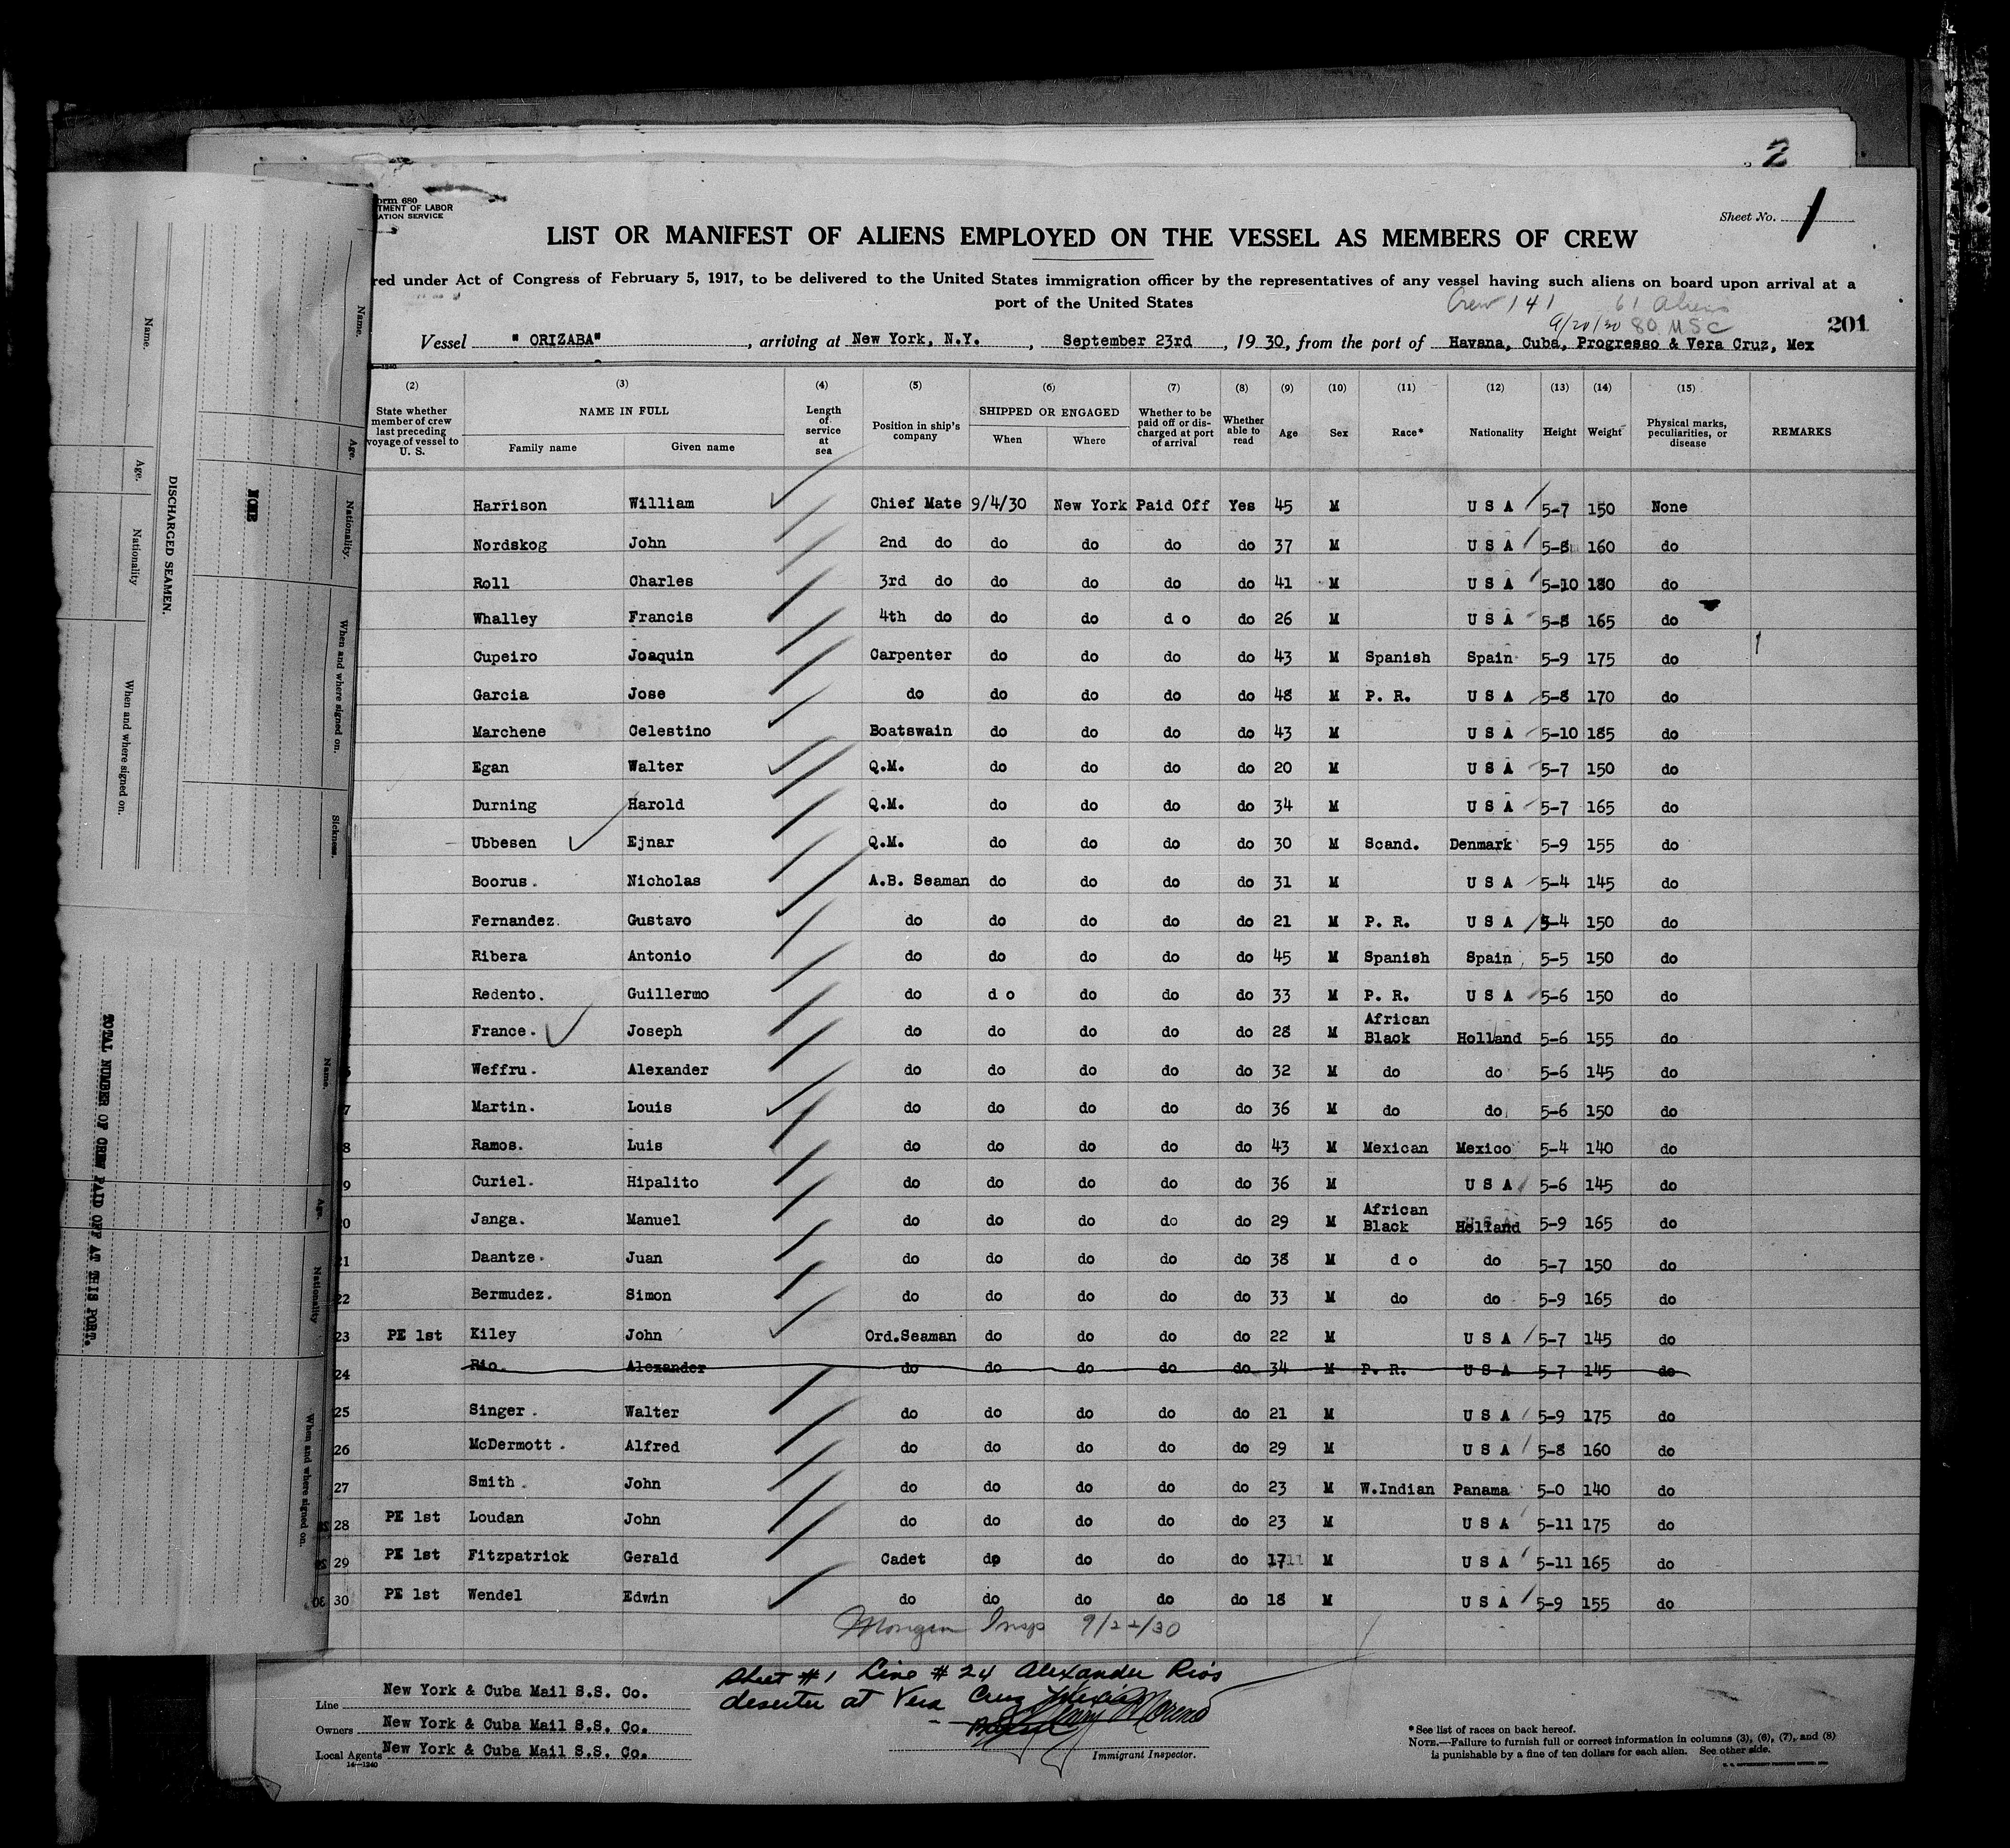 2
Form 680
TMENT OF LABOR
ATION SERVICE
Sheet No. 1
LIST OR MANIFEST OF ALIENS EMPLOYED ON THE VESSEL AS MEMBERS OF CREW
red under Act of Congress of February 5, 1917, to be delivered to the United States immigration officer by the representatives of any vessel having such aliens on board upon arrival at a
port of the United States
Crew 141 61 Aliens
9/20/30 80 U S C
201
Vessel " ORIZABA" , arriving at New York, N.Y. , September 23rd , 19 30, from the port of Havana, Cuba, Progresso & Vera Cruz, Mex
(2) (3) (4) (5) (6) (7) (8) (9) (10) (11) (12) (13) (14) (15)
State whether member of crew last preceding voyage of vessel to U. S. NAME IN FULL Family name Given name Length of service at sea Position in ship's company SHIPPED OR ENGAGED When Where Whether to be paid off or discharged at port of arrival Whether able to read Age Sex Race* Nationality Height Weight Physical marks, peculiarities, or disease REMARKS
Harrison William Chief Mate 9/4/30 New York Paid Off Yes 45 M U S A 5-7 150 None
Nordskog John 2nd do do do do do 37 M U S A 5-8 160 do
Roll Charles 3rd do do do do do 41 M U S A 5-10 180 do
Whalley Francis 4th do do do d o do 26 M U S A 5-8 165 do
Cupeiro Joaquin Carpenter do do do do 43 M Spanish Spain 5-9 175 do
Garcia Jose do do do do do 48 M P. R. U S A 5-8 170 do
Marchene Celestino Boatswain do do do do 43 M U S A 5-10 185 do
Egan Walter Q.M. do do do do 20 M U S A 5-7 150 do
Durning Harold Q.M. do do do do 34 M U S A 5-7 165 do
Ubbesen Ejnar Q.M. do do do do 30 M Scand. Denmark 5-9 155 do
Boorus. Nicholas A.B. Seaman do do do do 31 M U S A 5-4 145 do
Fernandez. Gustavo do do do do do 21 M P. R. U S A 5-4 150 do
Ribera Antonio do do do do do 45 M Spanish Spain 5-5 150 do
Redento. Guillermo do d o do do do 33 M P. R. U S A 5-6 150 do
France. Joseph do do do do do 28 M African Black Holland 5-6 155 do
Weffru. Alexander do do do do do 32 M do do 5-6 145 do
7 Martin. Louis do do do do do 36 M do do 5-6 150 do
8 Ramos. Luis do do do do do 43 M Mexican Mexico 5-4 140 do
9 Curiel. Hipalito do do do do do 36 M U S A 5-6 145 do
20 Janga. Manuel do do do do do 29 M African Black Holland 5-9 165 do
21 Daantze. Juan do do do do do 38 M d o do 5-7 150 do
22 Bermudez. Simon do do do do do 33 M do do 5-9 165 do
23 PE 1st Kiley John Ord.Seaman do do do do 22 M U S A 5-7 145 do
24 Rio. Alexander do do do do do 34 M P. R. U S A 5-7 145 do
25 Singer. Walter do do do do do 21 M U S A 5-9 175 do
26 McDermott. Alfred do do do do do 29 M U S A 5-8 160 do
27 Smith. John do do do do do 23 M W.Indian Panama 5-0 140 do
28 PE 1st Loudan John do do do do do 23 M U S A 5-11 175 do
29 PE 1st Fitzpatrick Gerald Cadet do do do do 17 M U S A 5-11 165 do
30 PE 1st Wendel Edwin do do do do do 18 M U S A 5-9 155 do
Insp
Sheet #1 Line #24 Alexander Rios
deserter at Vera Cruz Mexico
Line New York & Cuba Mail S.S. Co.
Owners New York & Cuba Mail S.S. Co.
Local Agents New York & Cuba Mail S.S. Co.
14—1240
Immigrant Inspector.
*See list of races on back hereof.
NOTE.—Failure to furnish full or correct information in columns (3), (6), (7), and (8)
is punishable by a fine of ten dollars for each alien. See other side.
DISCHARGED SEAMEN.
NONE
Name. Age. Nationality. When and where signed on. Sickness.
Name. Age. Nationality When and where signed on.
Name. Age. Nationality When and where signed on.
TOTAL NUMBER OF CREW PAID OFF AT THIS PORT.